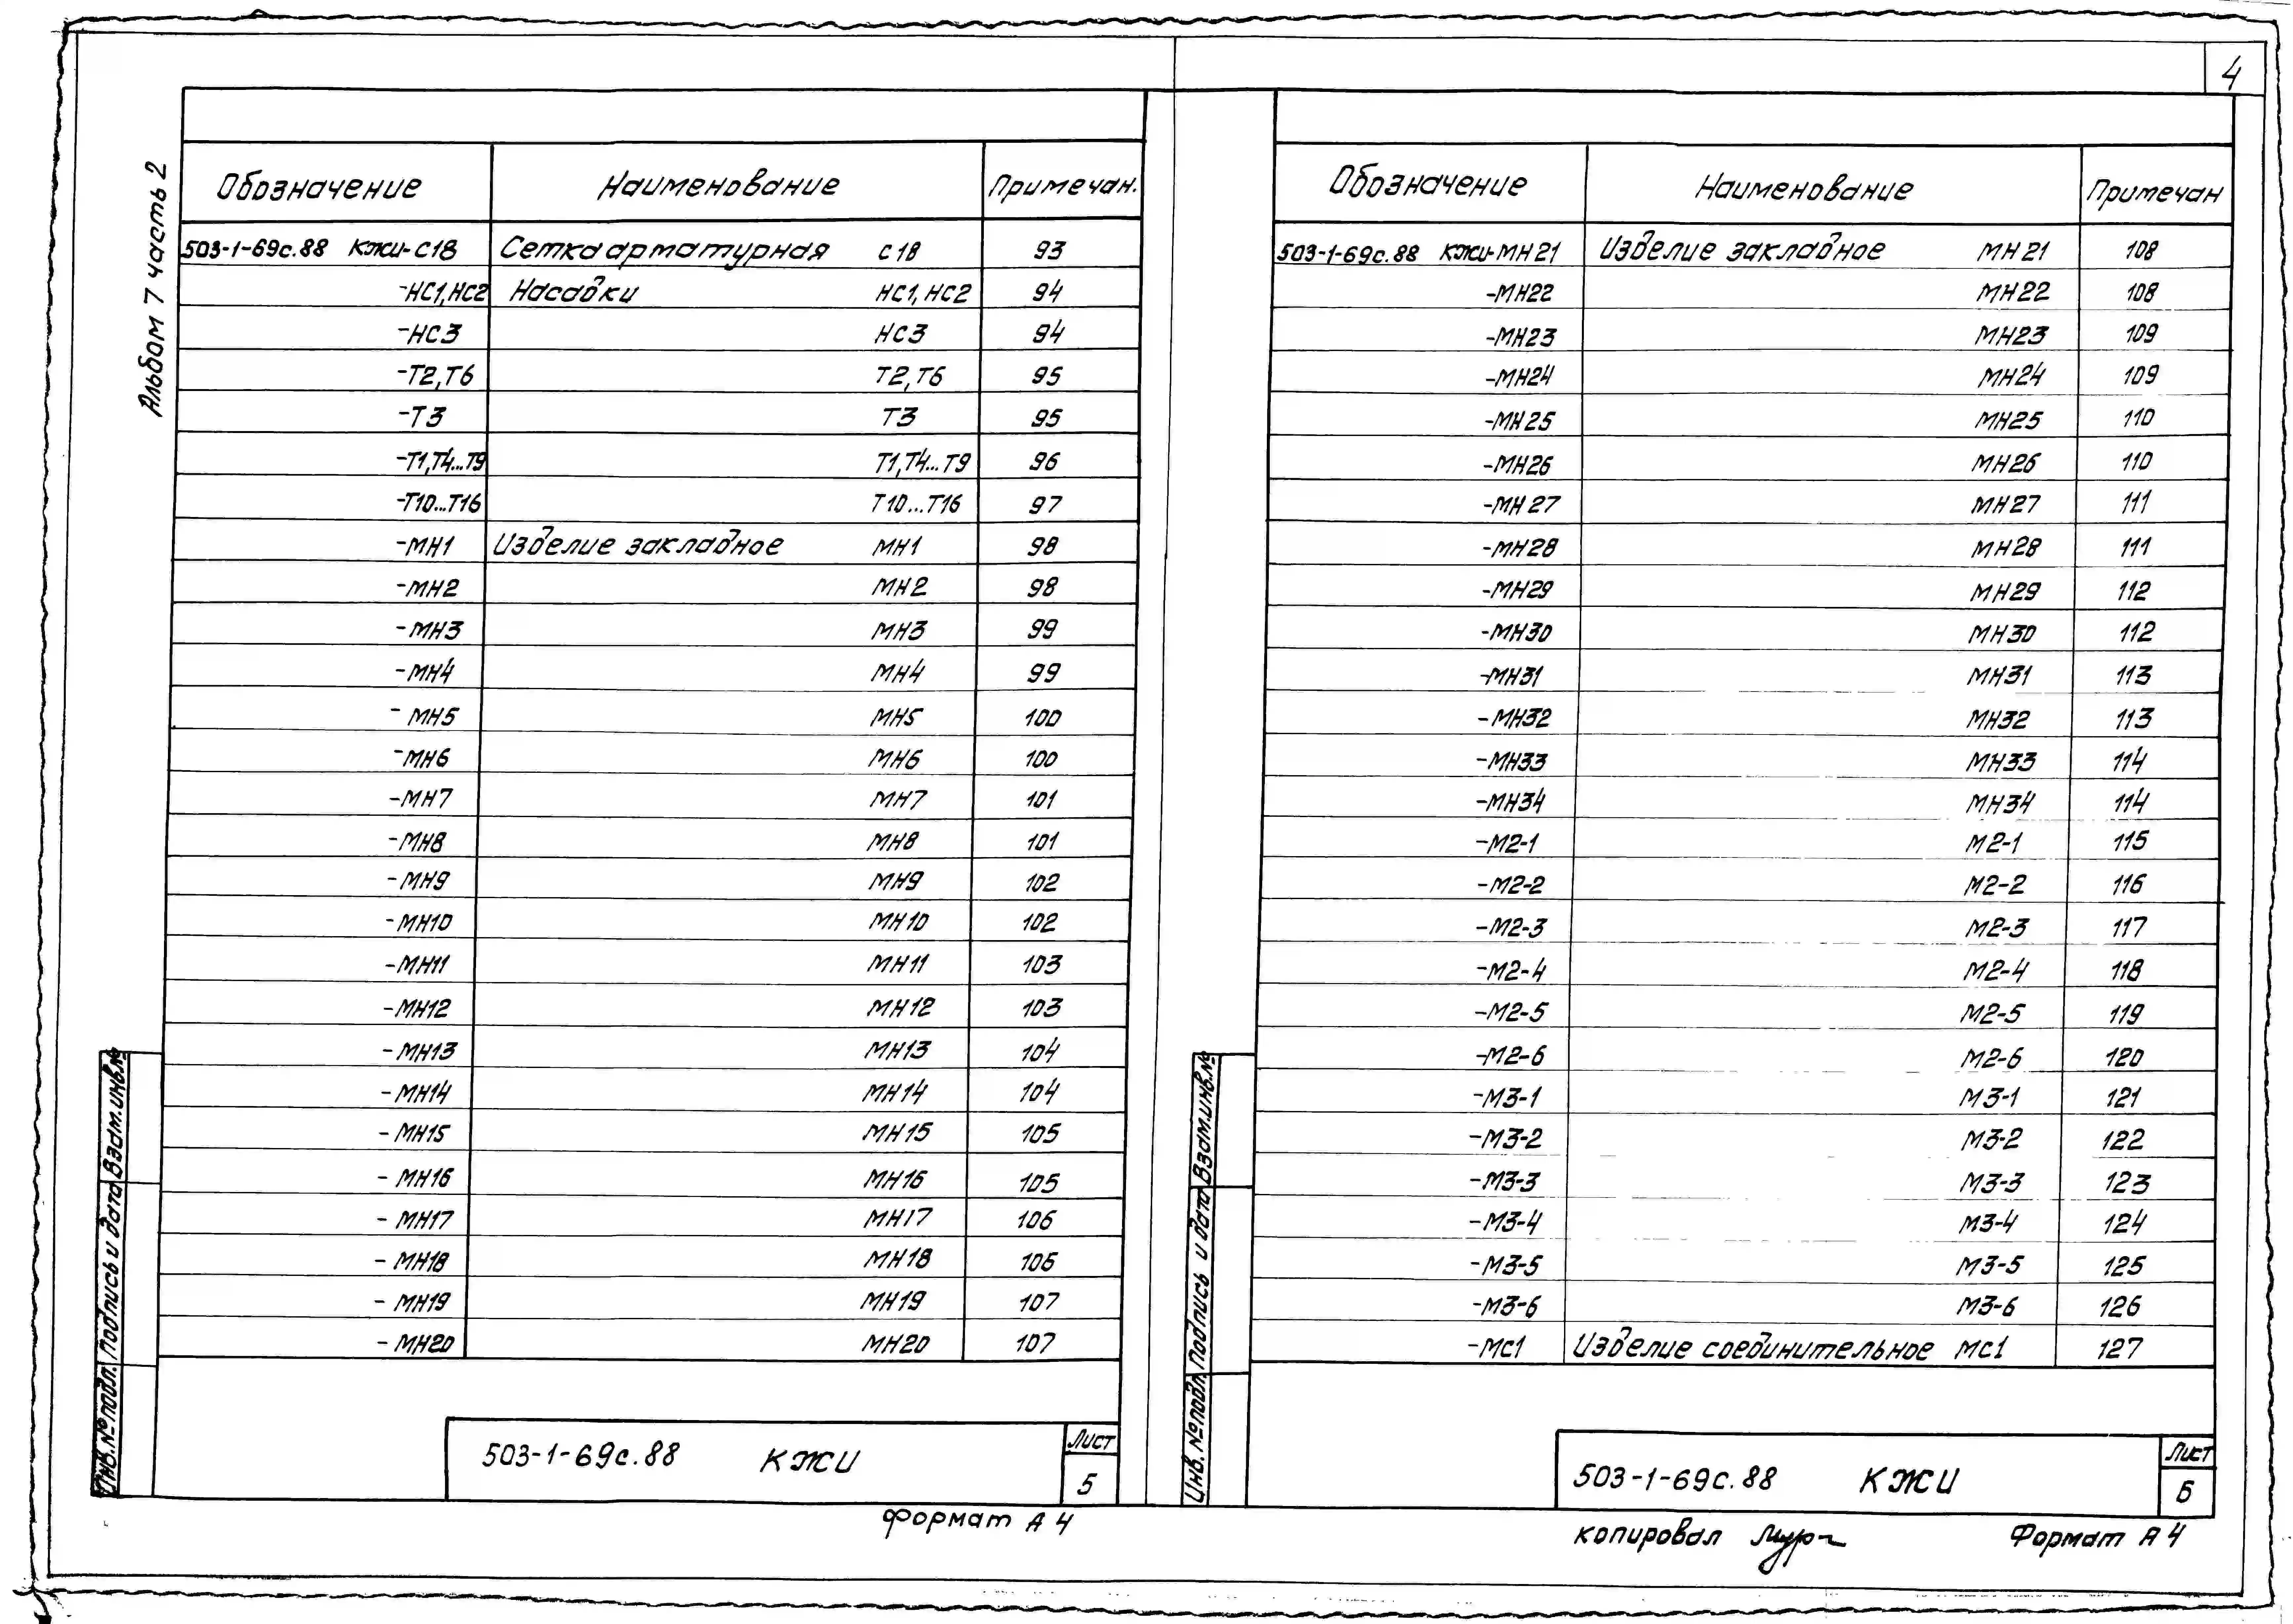 4
Альбом 7 часть 2
Обозначение Наименование Примечан.
503-1-69с.88 КЖИ-С18 Сетка арматурная С18 93
-НС1,НС2 Насадки НС1, НС2 94
-НС3 НС3 94
-Т2,Т6 Т2,Т6 95
-Т3 Т3 95
-Т1,Т4...Т9 Т1,Т4...Т9 96
-Т10...Т16 Т10...Т16 97
-МН1 Изделие закладное МН1 98
-МН2 МН2 98
-МН3 МН3 99
-МН4 МН4 99
-МН5 МН5 100
-МН6 МН6 100
-МН7 МН7 101
-МН8 МН8 101
-МН9 МН9 102
-МН10 МН10 102
-МН11 МН11 103
-МН12 МН12 103
-МН13 МН13 104
-МН14 МН14 104
-МН15 МН15 105
-МН16 МН16 105
-МН17 МН17 106
-МН18 МН18 106
-МН19 МН19 107
-МН20 МН20 107
Инв.№ подл. Подпись и дата Взам.инв.№
503-1-69с.88 КЖИ
Лист
5
Формат А4
Обозначение Наименование Примечан
503-1-69с.88 КЖИ-МН21 Изделие закладное МН21 108
-МН22 МН22 108
-МН23 МН23 109
-МН24 МН24 109
-МН25 МН25 110
-МН26 МН26 110
-МН27 МН27 111
-МН28 МН28 111
-МН29 МН29 112
-МН30 МН30 112
-МН31 МН31 113
-МН32 МН32 113
-МН33 МН33 114
-МН34 МН34 114
-М2-1 М2-1 115
-М2-2 М2-2 116
-М2-3 М2-3 117
-М2-4 М2-4 118
-М2-5 М2-5 119
-М2-6 М2-6 120
-М3-1 М3-1 121
-М3-2 М3-2 122
-М3-3 М3-3 123
-М3-4 М3-4 124
-М3-5 М3-5 125
-М3-6 М3-6 126
-МС1 Изделие соединительное МС1 127
Инв.№ подл. Подпись и дата Взам.инв.№
503-1-69с.88 КЖИ
Лист
6
копировал Формат А4